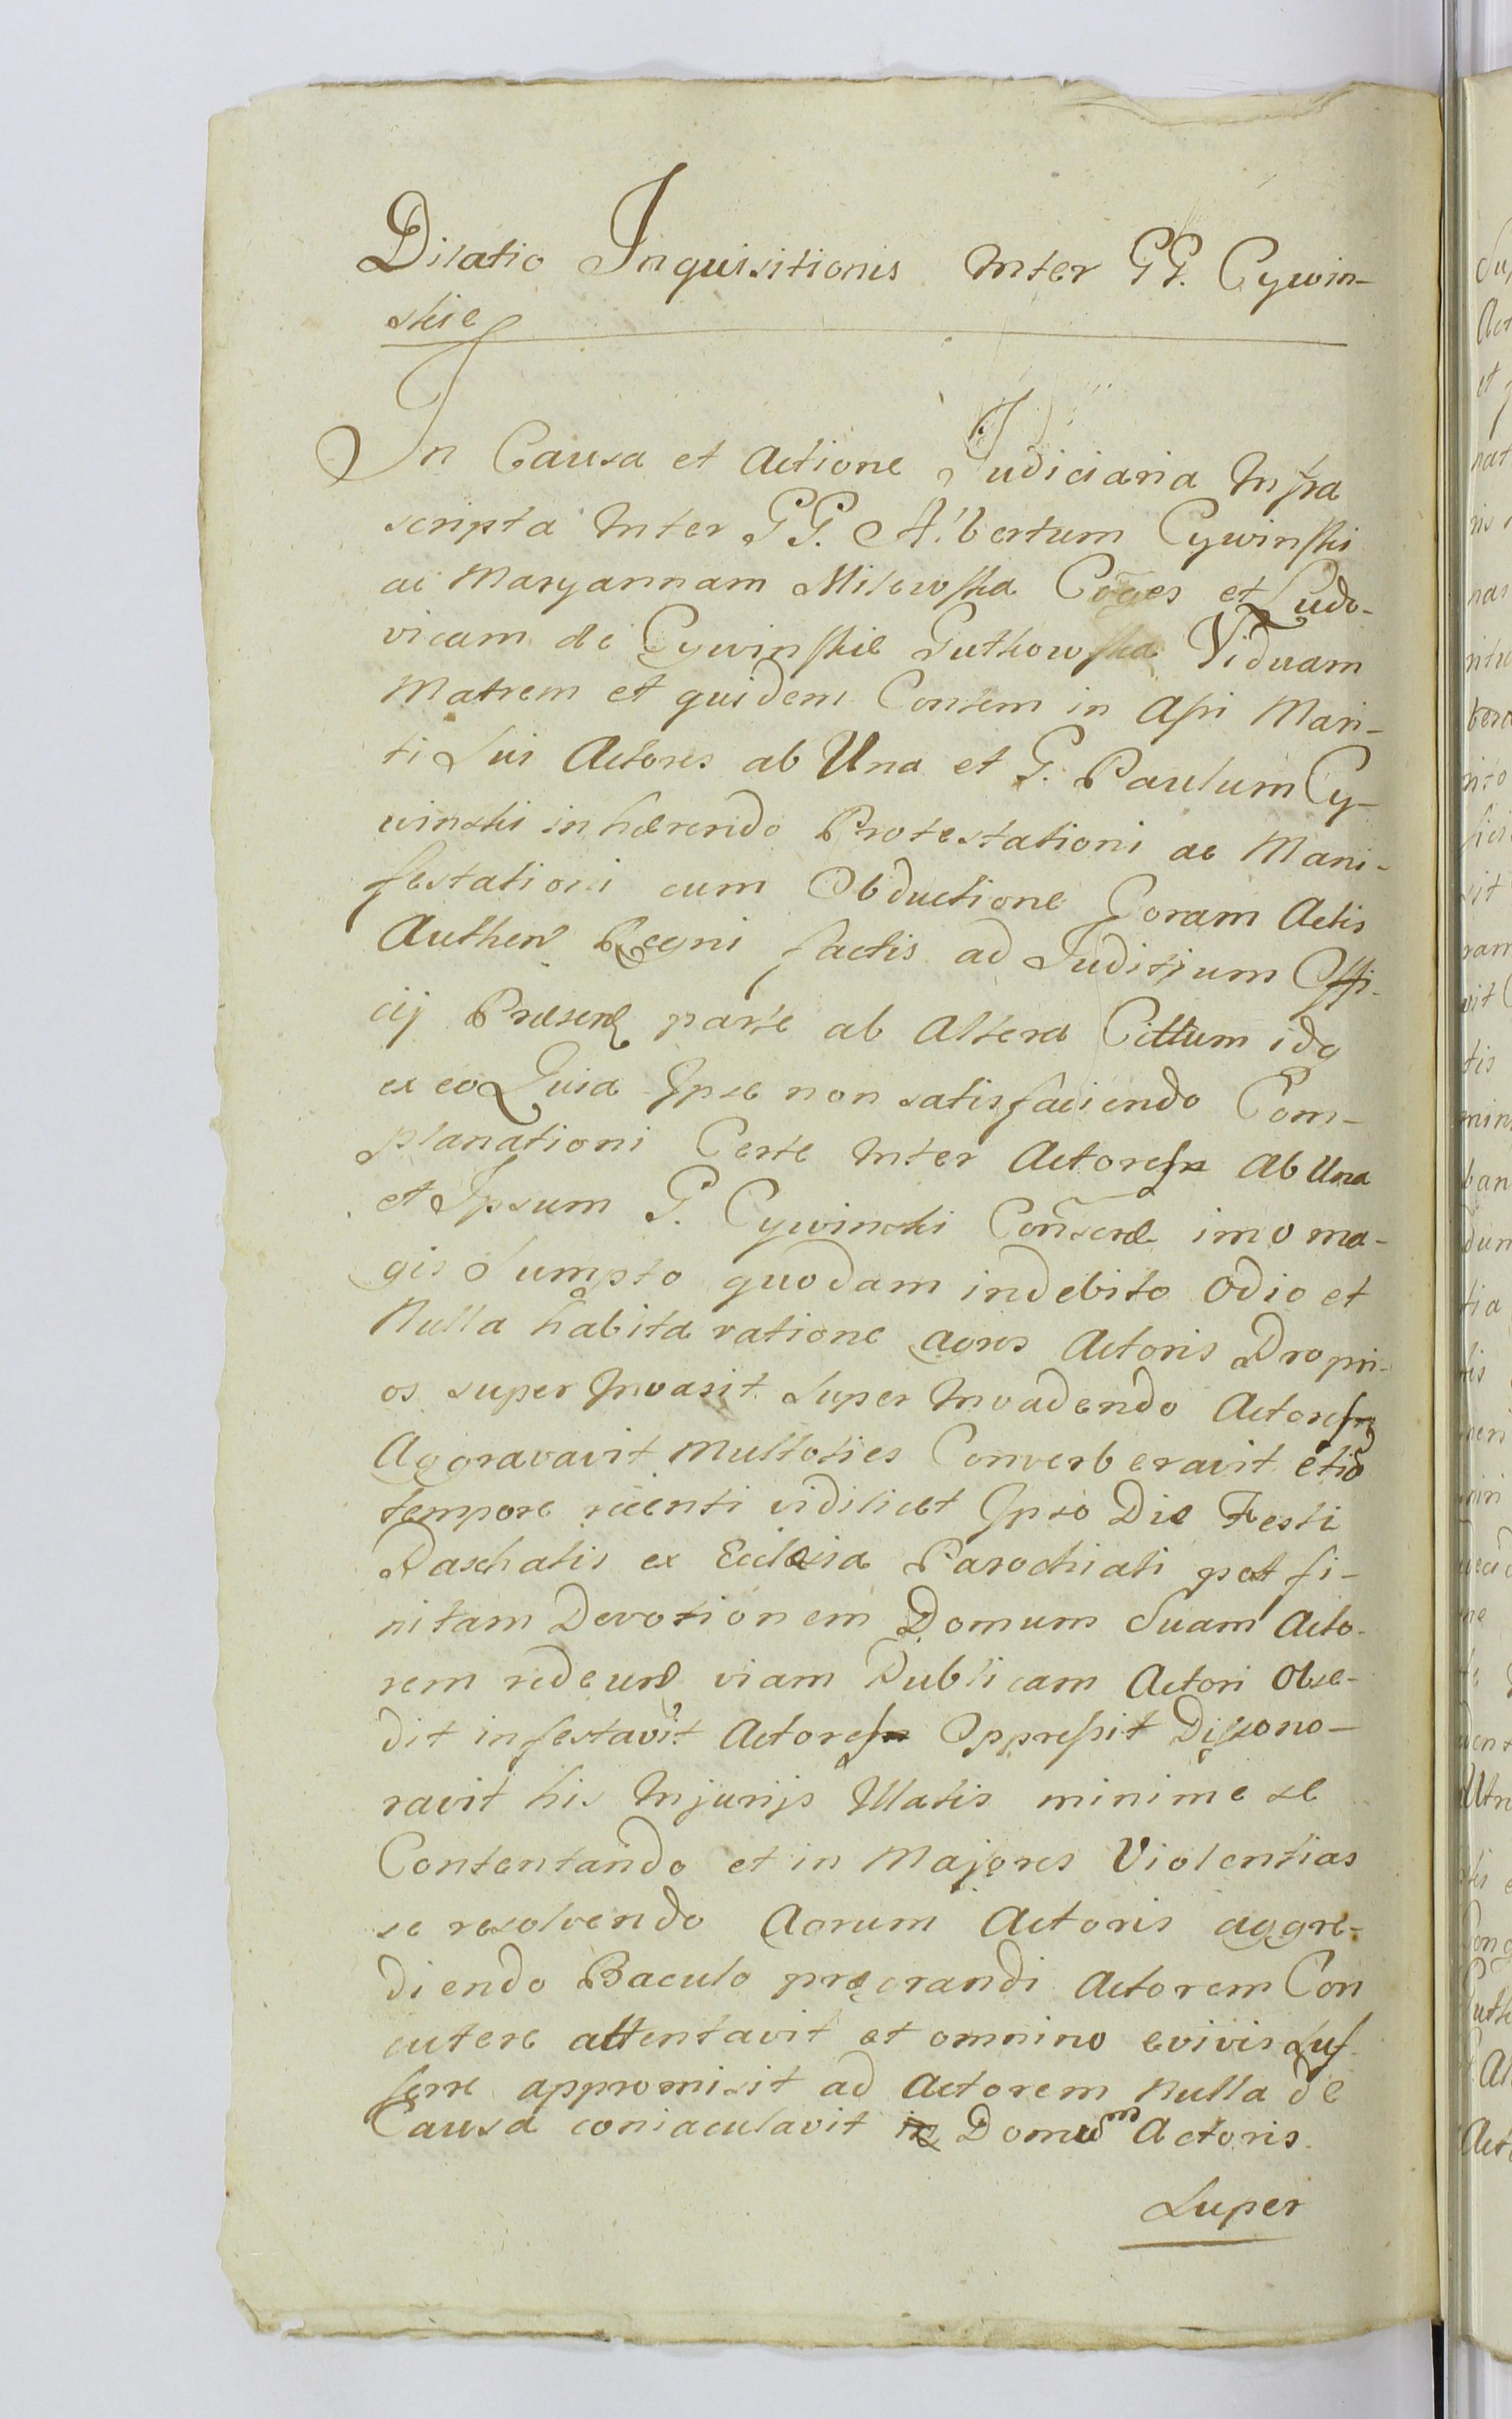 Dilatio Inquisitionis Inter GG. Cywin-
skie
In Causa et Actione Judiciaria Infra
scripta Inter GG. Albertum Cywinski
ac Maryannam Milewska Coges et Ludo-
vicam de Cywinskie Gutkowska Viduam
Matrem et quidem Consem in Assi Mari-
ti Sui Actores ab Una et G. Paulum Cy-
winski inhærendo Protestationi ac Mani-
festationi cum Obductione Coram Actis
Authen Regni factis ad Juditium Offi-
cij Præsen parte ab Altera Cittum idq
ex eo Quia Ipse non satisfaciendo Com-
planationi Certe Inter Actorem Ab Una
et Ipsum G. Cywinski Conseræ imo ma-
gis Sumpto quodam indebito Odio et
Nulla habita ratione agros Actoris Propri-
os super Invasit Super Invadendo Actorem
Aggravavit Multoties Converberavit etiã
tempore recenti vidilicet Ipso Die Festi
Paschalis ex Ecclesia Parochiali post fi-
nitam Devotionem Domum Suam Acto-
rem redeun viam Publicam Actori Obse-
dit infestavit Actorem Oppressit Dishono-
ravit his Injurijs Illatis minime se
Contentando et in Majores Violentias
se resolvendo Agrum Actoris aggre-
diendo Baculo prægrandi Actorem Con
cutere attentavit et omnino evivis suf-
ferre appromisit ad Actorem Nulla de
Causa coniaculavit Domum Actoris.
Super